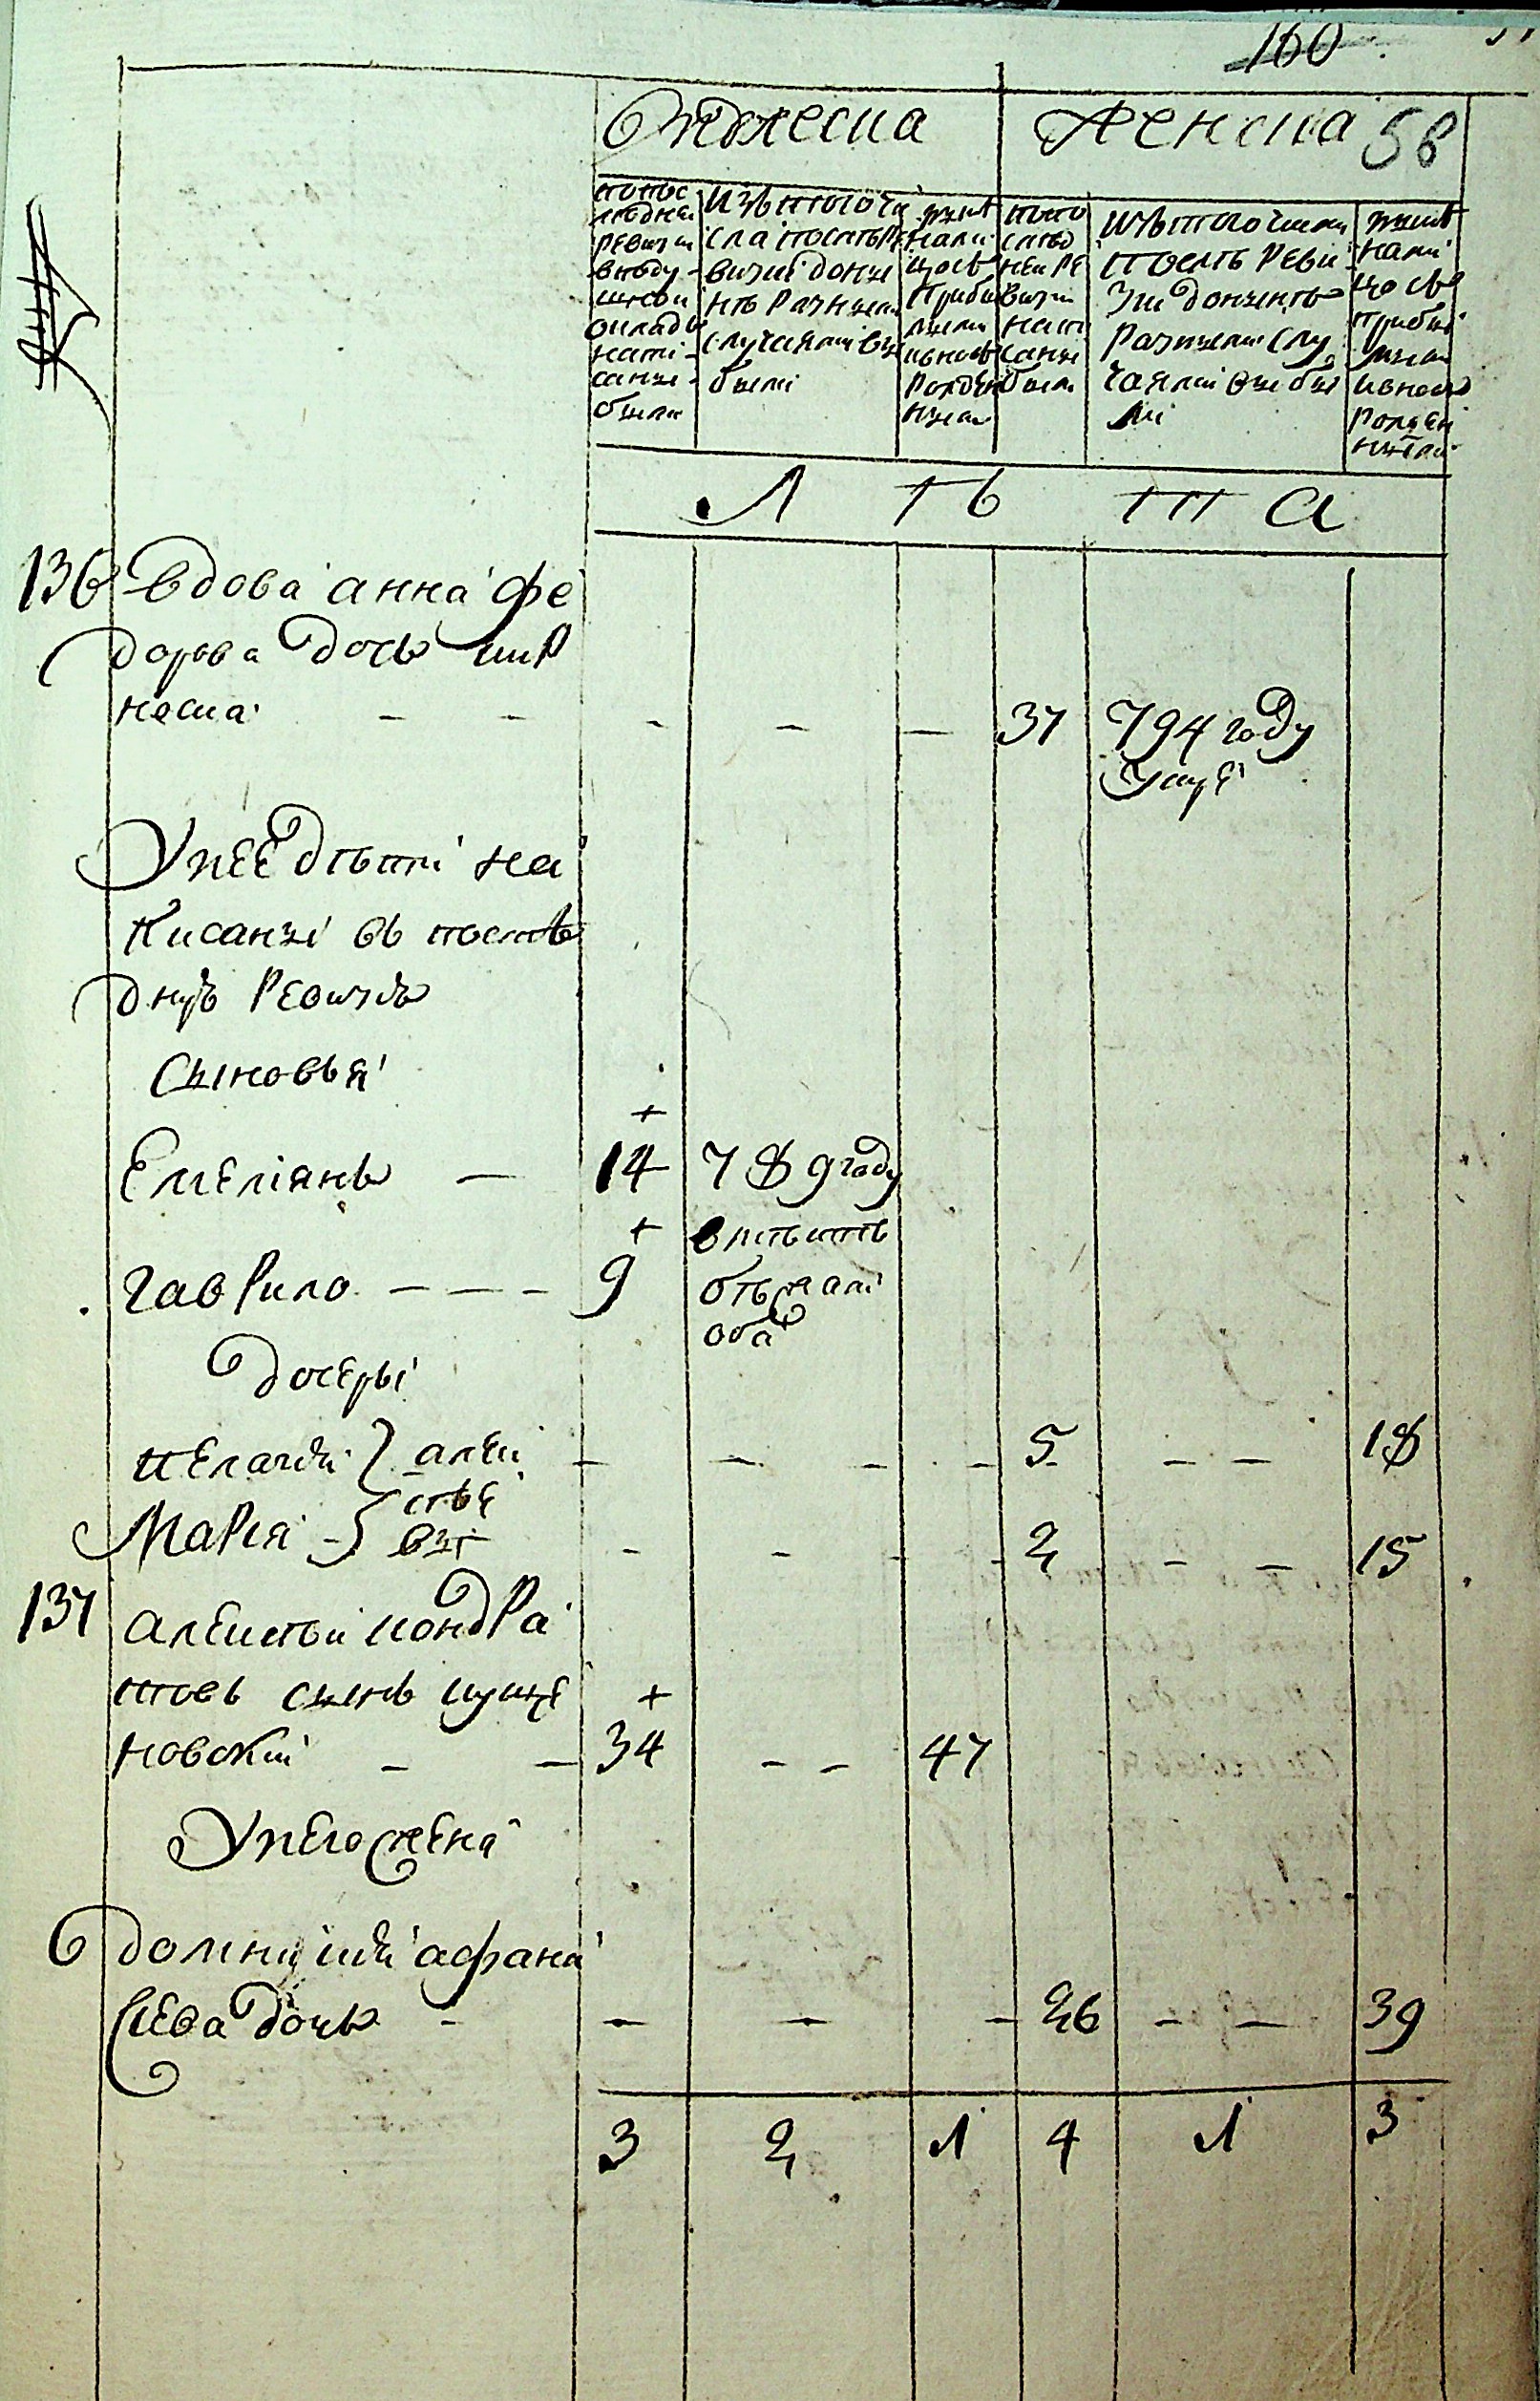 160
Мужеска
Женска 58
попос
ледней
ревизіи
в поду
шной
окладъ
напи
саны
были
изъ того чи
сла послѣ ре
визіи до ны
нѣ разными
случаями вы
были
ныне
нали
цо съ
прибы
лыми
и вновь
рожден
ными
по по
слѣд
ней ре
визіи
напи
саны
были
изъ того числа
послѣ реви
зіи до нынѣ
разными слу
чаями выбы
ли
ныне
нали
цо съ
прибы
лыми
и вновь
рожден
ными
Л ѣ т а
136 вдова анна фе
дорова дочь
37 794 году
умре
У нее дѣти на
писаны въ послѣ
днуъ ревизію
сыновья
Емеліянъ 14 789 году
гаврило 9
оба
дочеры
пелагѣи } алеи 5 18
Марія 2 15
137 алеистъй кондра
товъ сынъ
новский 34 47
У него жена
домникия афана
сиева дочь 26 39
3 2 1 4 1 3